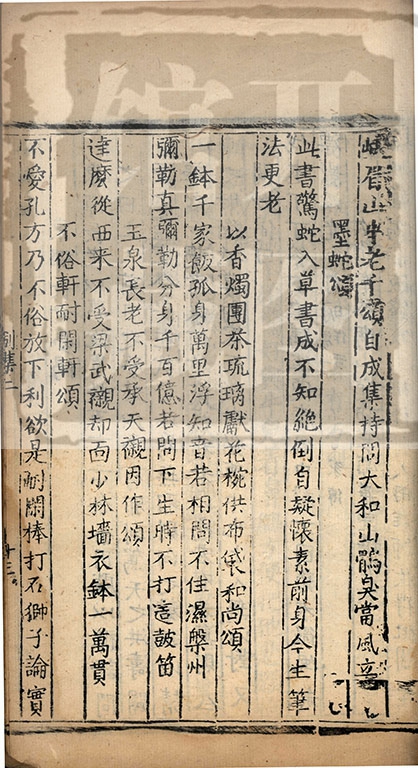 峨眉山中老千頌自成集持問大和山鷴臭當風立
墨蛇頌
此書驚蛇入草書成不知絶倒自疑懷素前身今生筆
法更老
以香燭團茶琉璃獻花椀供布袋和尚頌
一鉢千家飯孤身萬里浮知音若相問不住濕槃州
彌勒真彌勒分身千百億若問下生時不打這皷笛
玉泉長老不受承天襯因作頌
達麼從西來不受梁武襯却面少林墻衣鉢一萬貫
不俗軒耐閑軒頌
不愛孔方乃不俗放下利欲是耐閑棒打石獅子論實
別集二
十三